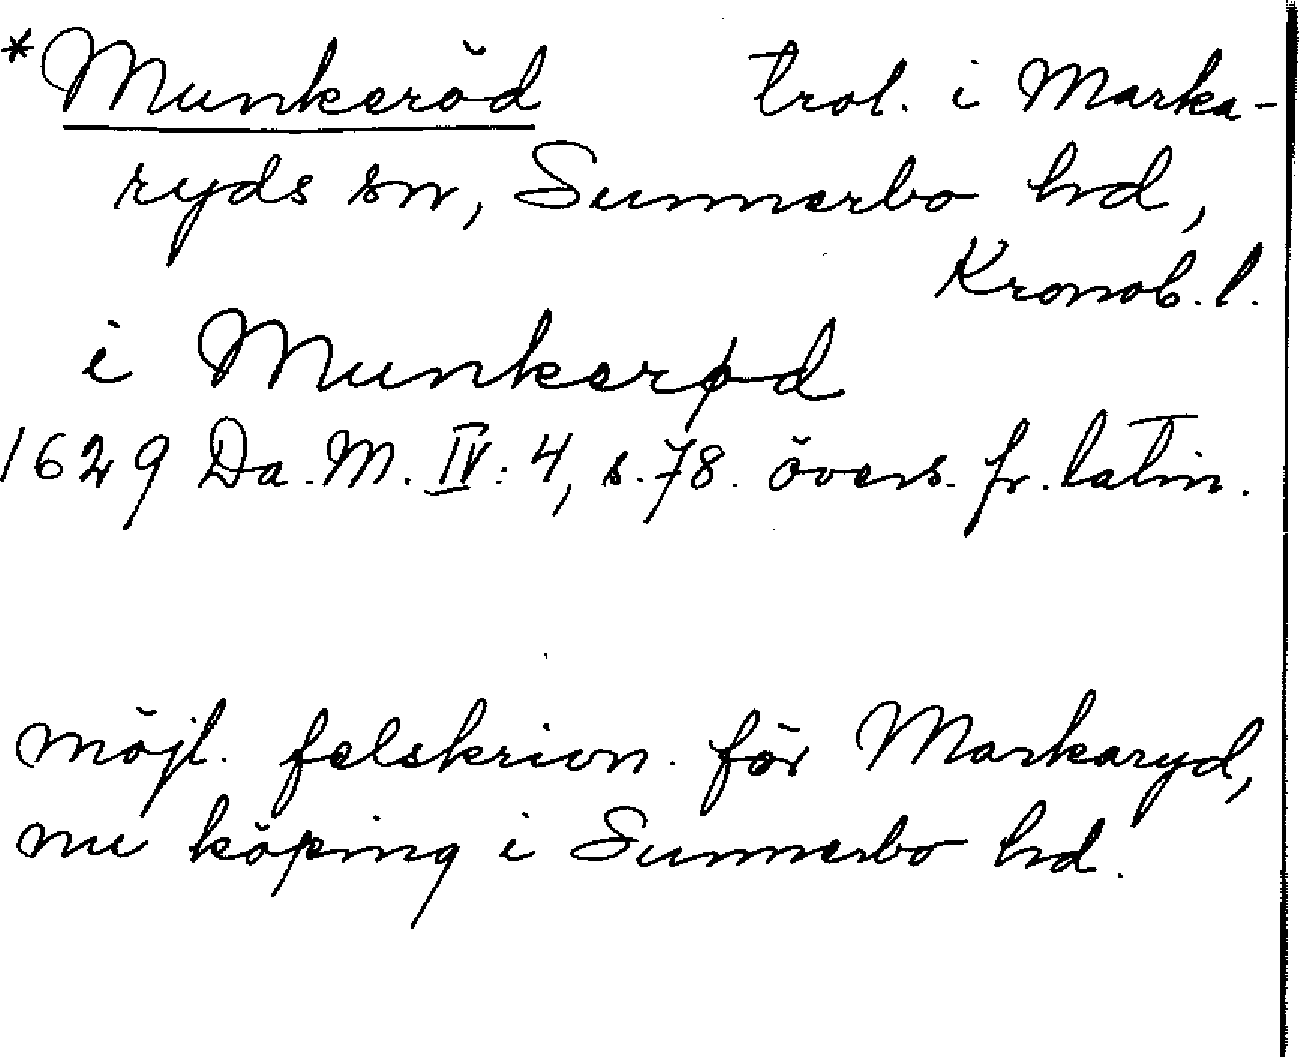 *Munkeröd trol. i Marka-
ryds sn, Sunnerbo hd,
Kronob. l.
i Munkerød
1629 Da. M. IV: 4, s. 78. övers. fr. latin.
möjl. felskrivn. för Markaryd,
nu köping i Sunnerbo hd.